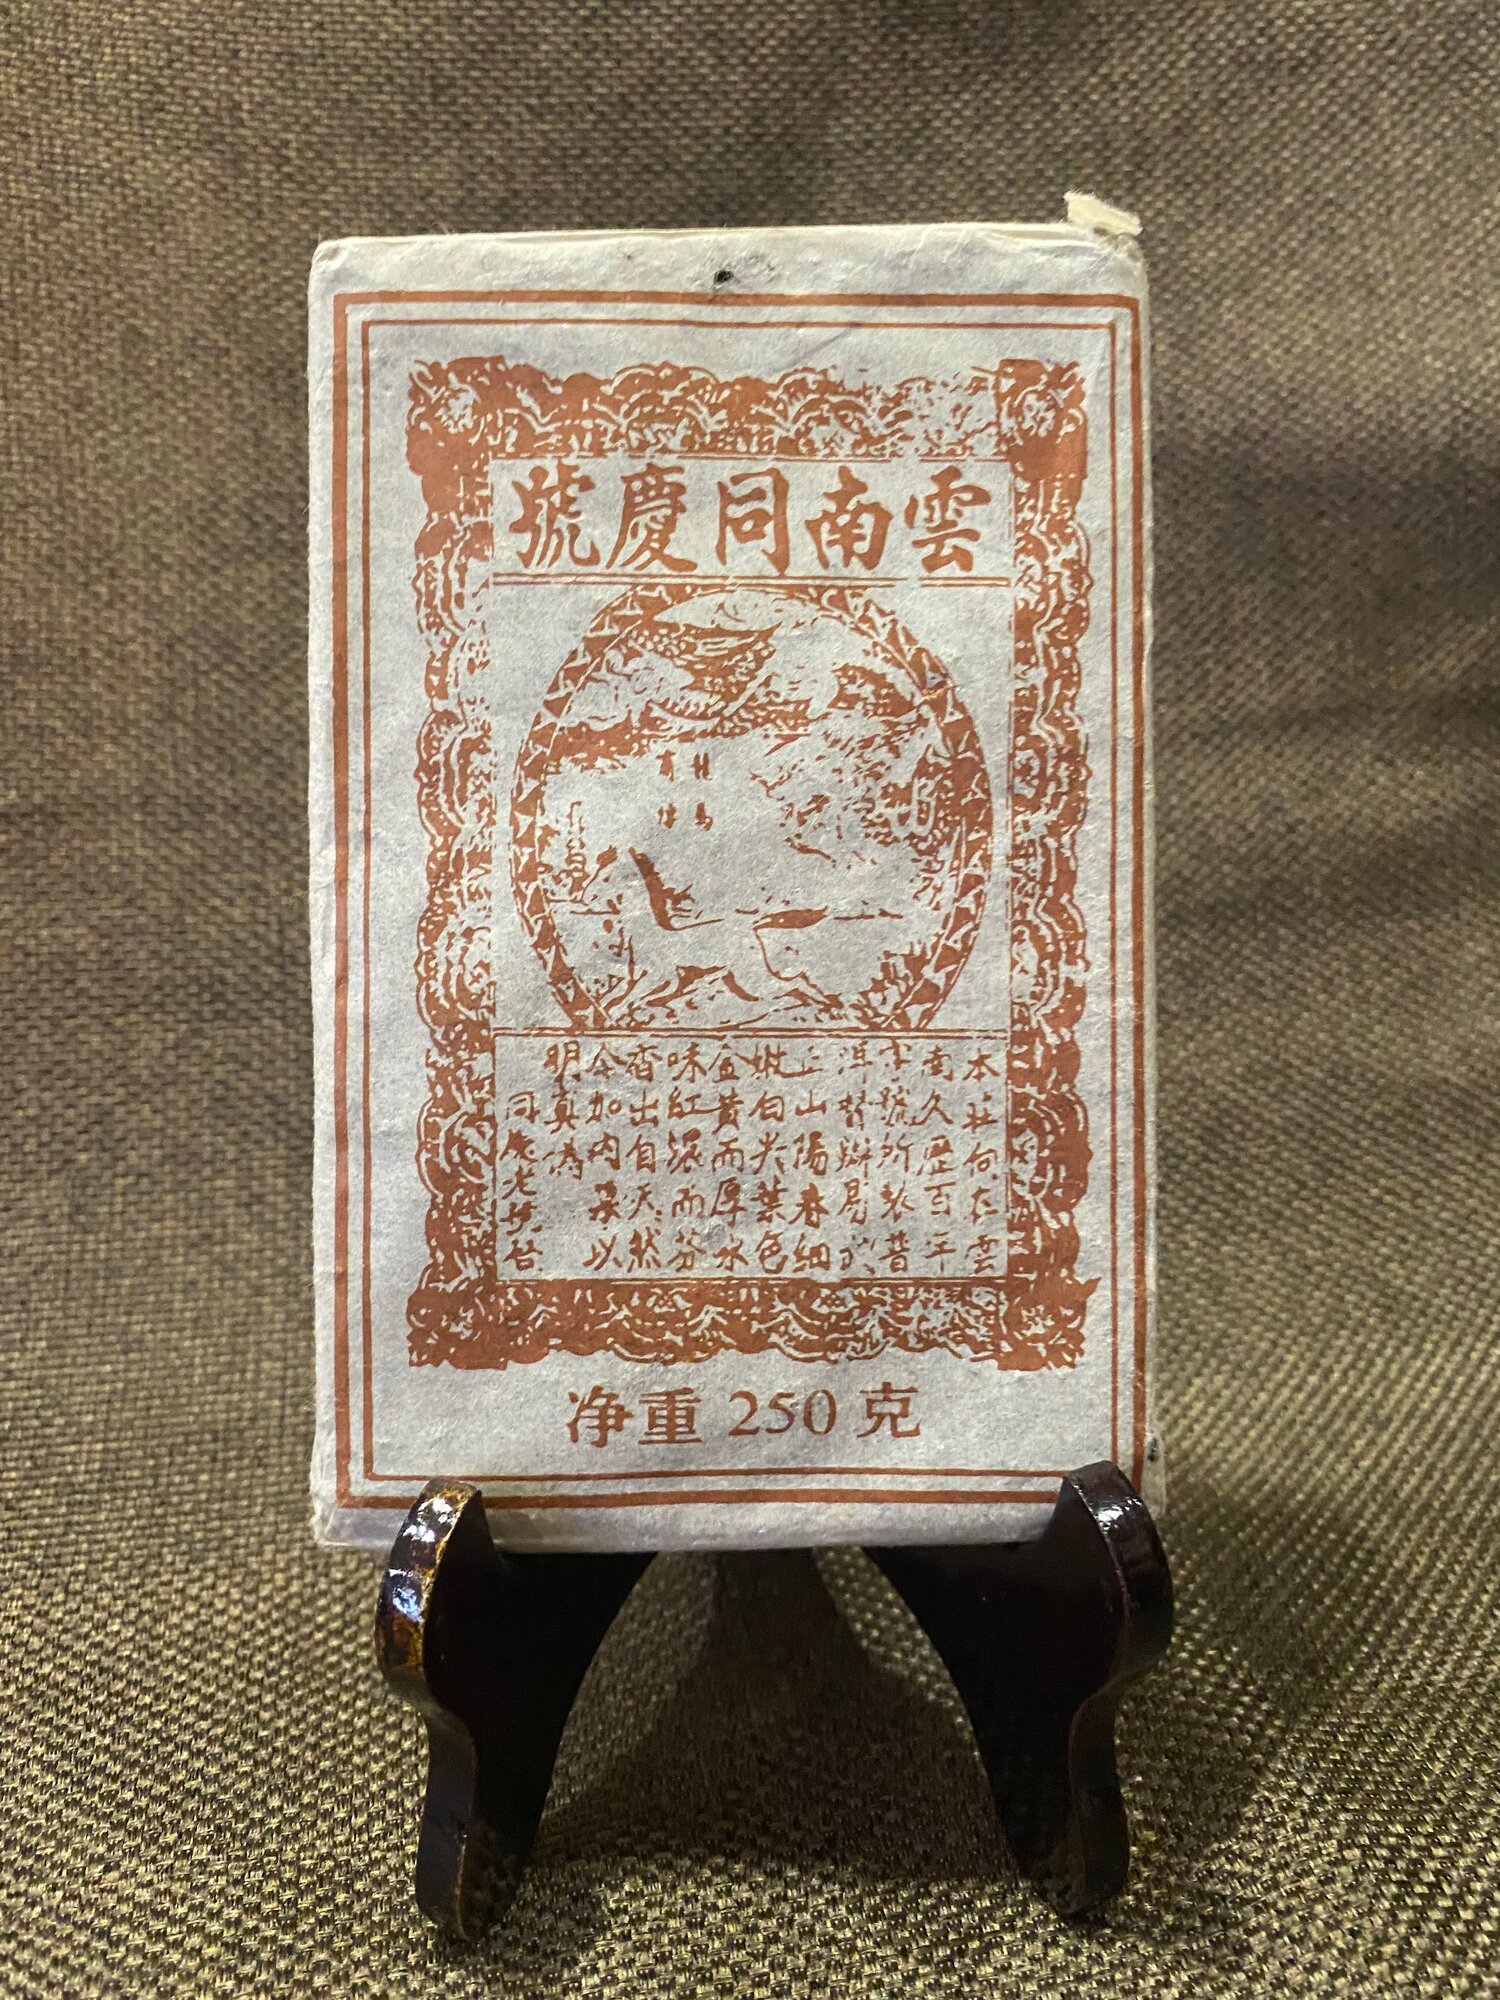 雲南同慶號
龍馬
商標
本莊向在雲
南久歷百年
字號所製普
洱督辦易武
正山陽春細
嫩白尖葉色
金黃而厚水
味紅濃而芬
香出自天然
今加內票以
明真偽
同慶老號啟
净重 250 克